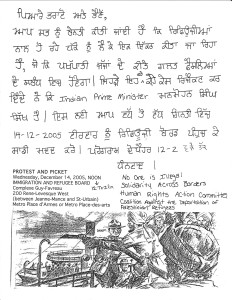 ਪਿਆਰੇ ਭਰਾਓ ਅਤੇ ਭੈਣੋਂ,
ਆਪ ਸਭ ਨੂੰ ਬੇਨਤੀ ਕੀਤੀ ਜਾਂਦੀ ਹੈ ਕਿ ਰਿਫਿਊਜੀਆਂ
ਨਾਲ ਹੋ ਰਹੇ ਧੱਕੇ ਨੂੰ ਇਕ ਇਕੱਠ ਕੀਤਾ ਜਾ ਰਿਹਾ
ਹੈ, ਜੋ ਕਿ ਪੱਖਪਾਤੀ ਜੱਜਾਂ ਦੇ ਕੀਤੇ ਗਲਤ ਫੈਸਲਿਆਂ
ਦੇ ਹੋਵੇਗਾ। ਇਹ ਕੇਸ ਰਿਜੈਕਟ ਕਰ
ਦਿੰਦੇ ਨੇ ਕਿ Indian Prime Minister ਮਨਮੋਹਨ ਸਿੰਘ
ਸਿੱਖ ਹੈ। ਇਸ ਲਈ ਆਪ ਵੱਧ ਤੋਂ ਵੱਧ ਗਿਣਤੀ ਵਿੱਚ
14-12-2005 ਵੀਰਵਾਰ ਨੂੰ ਰਿਫਿਊਜੀ ਬੋਰਡ ਪਹੁੰਚ ਕੇ
ਸਾਡੀ ਮਦਦ ਕਰੋ। ਪ੍ਰੋਗਰਾਮ ਦੁਪਹਿਰ 12-2
ਧੰਨਵਾਦ।
PROTEST AND PICKET
Wednesday, December 14, 2005, NOON
IMMIGRATION AND REFUGEE BOARD
Complexe Guy-Favreau
200 Rene-Levesque West
(between Jeanne-Mance and St-Urbain)
Metro Place d'Armes or Metro Place-des-arts
No One is Illegal
Solidarity Across Borders
Human Rights Action Committee
Coalition Against the Deportation of
Palestinian Refugees